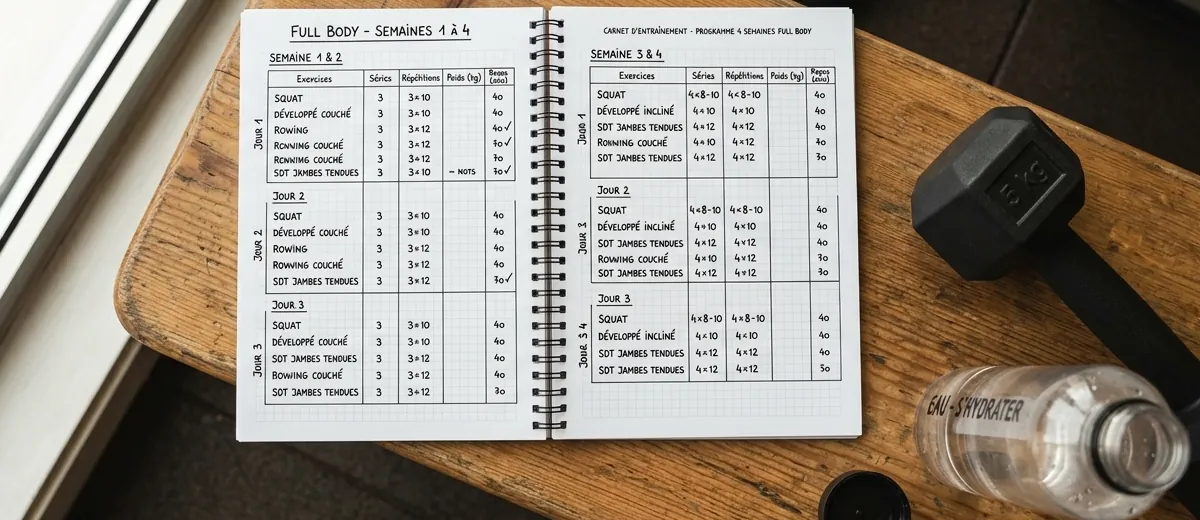 FULL BODY - SEMAINES 1 À 4
SEMAINE 1 & 2
Exercices Séries Répétitions Poids (kg) Repos
JOUR 1
SQUAT 3 3×10 40
DÉVELOPPÉ COUCHÉ 3 3×10 40
ROWING 3 3×12 40 ✓
RONNING COUCHÉ 3 3×12 70 ✓
RENNING COUCHÉ 3 3×12 70
SDT JAMBES TENDUES 3 3×10 – NOTS 70 ✓
JOUR 2
JOUR 2
SQUAT 3 3×10 40
DÉVELOPPÉ COUCHÉ 3 3×10 40
ROWING 3 3×12 40
ROWWING COUCHÉ 3 3×12 40
SDT JAMBES TENDUES 3 3×12 70 ✓
JOUR 3
JOUR 3
SQUAT 3 3×10 40
DÉVELOPPÉ COUCHÉ 3 3×10 40
SDT JAMBES TENDUES 3 3×12 40
BOWING COUCHÉ 3 3×12 40
SDT JAMBES TENDUES 3 3×12 30
CARNET D'ENTRAÎNEMENT - PROGRAMME 4 SEMAINES FULL BODY
SEMAINE 3 & 4
Exercices Séries Répétitions Poids (kg) Repos
SQUAT 4×8-10 4×8-10 40
DÉVELOPPÉ INCLINÉ 4×10 4×10 40
SDT JAMBES TENDUES 4×12 4×12 40
RONNING COUCHÉ 4×10 4×12 70
SDT JAMBES TENDUES 4×12 4×12 30
JOUR 2
SQUAT 4×8-10 4×8-10 40
DÉVELOPPÉ INCLINÉ 4×10 4×10 40
SDT JAMBES TENDUES 4×12 4×12 40
ROWWING COUCHÉ 4×10 4×12 30
SDT JAMBES TENDUES 4×12 4×12 70
JOUR 3
SQUAT 4×8-10 4×8-10 40
DÉVELOPPÉ INCLINÉ 4×10 4×10 40
SDT JAMBES TENDUES 4×12 4×12 40
SDT JAMBES TENDUES 4×12 4×12 50
5 KG
EAU - S'HYDRATER